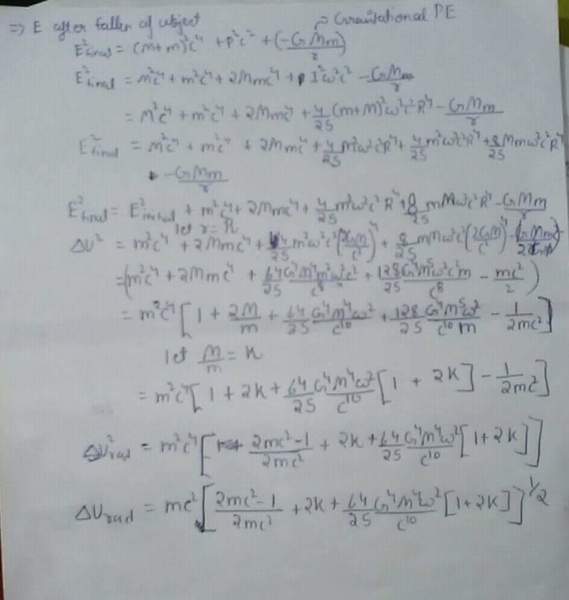 ⇒ E after fallen of object → Gravitational PE
E²final = (M+m)²c⁴ + p²c² + (-GMm/r)
E²final = M²c⁴ + m²c⁴ + 2Mmc⁴ + I²ω²c² - GMm/r
= M²c⁴ + m²c⁴ + 2Mmc⁴ + 4/25 (M+m)²ω²c²R⁴ - GMm/r
E²final = M²c⁴ + m²c⁴ + 2Mmc⁴ + 4/25 M²ω²c²R⁴ + 4/25 m²ω²c²R⁴ + 8/25 Mmω²c²R⁴
- GMm/r
E²final = E²initial + m²c⁴ + 2Mmc⁴ + 4/25 m²ω²c²R⁴ + 8/25 mMω²c²R⁴ - GMm/r
let r = R
ΔU² = m²c⁴ + 2Mmc⁴ + 4/25 m²ω²c²(2GM/c²)⁴ + 8/25 mMω²c²(2GM/c²)⁴ - GMm
= (m²c⁴ + 2Mmc⁴ + 64/25 G⁴M⁴m²ω²c²/c⁸ + 128/25 G⁴M⁵ω²c²m/c⁸ - mc²/2)
= m²c⁴[1 + 2M/m + 64/25 G⁴M⁴ω²/c¹⁰ + 128/25 G⁴M⁵ω²/c¹⁰m - 1/2mc²]
let M/m = K
= m²c⁴[1 + 2K + 64/25 G⁴M⁴ω²/c¹⁰ [1 + 2K] - 1/2mc²]
ΔU²rad = m²c⁴[2mc²-1/2mc² + 2K + 64/25 G⁴M⁴ω²/c¹⁰ [1+2K]]
ΔUrad = mc²[2mc²-1/2mc² + 2K + 64/25 G⁴M⁴ω²/c¹⁰ [1+2K]]^1/2